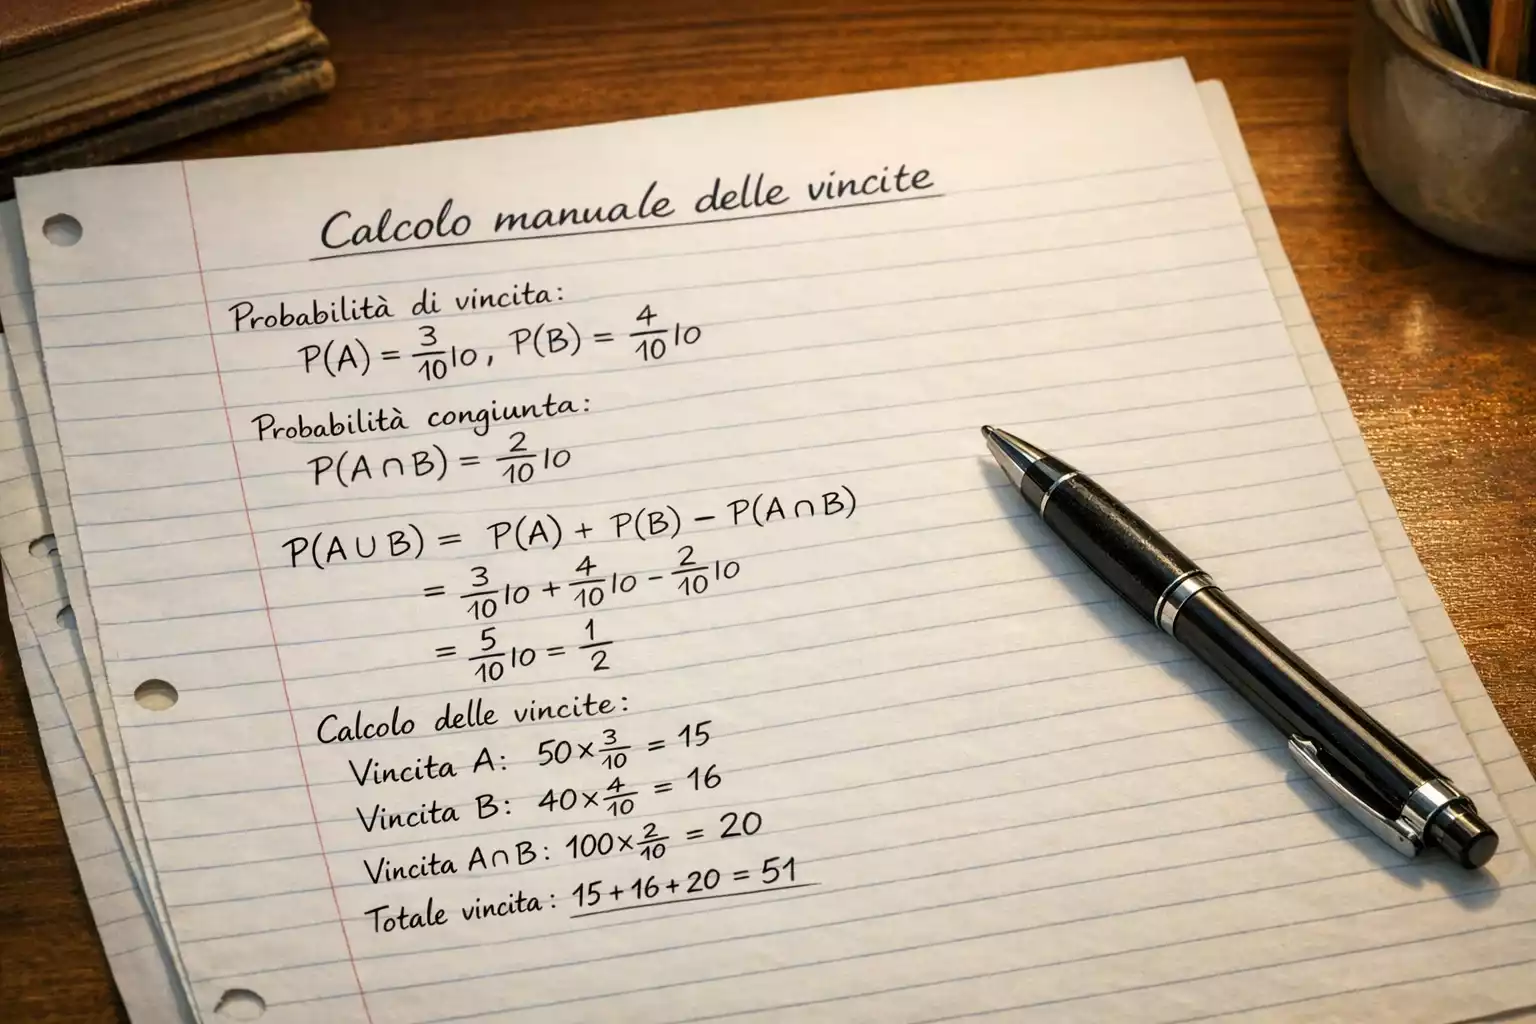 Calcolo manuale delle vincite
Probabilità di vincita:
P(A) = 3/10 10, P(B) = 4/10 10
Probabilità congiunta:
P(A ∩ B) = 2/10 10
P(A ∪ B) = P(A) + P(B) − P(A ∩ B)
= 3/10 10 + 4/10 10 − 2/10 10
= 5/10 10 = 1/2
Calcolo delle vincite:
Vincita A: 50 × 3/10 = 15
Vincita B: 40 × 4/10 = 16
Vincita A∩B: 100 × 2/10 = 20
Totale vincita: 15 + 16 + 20 = 51